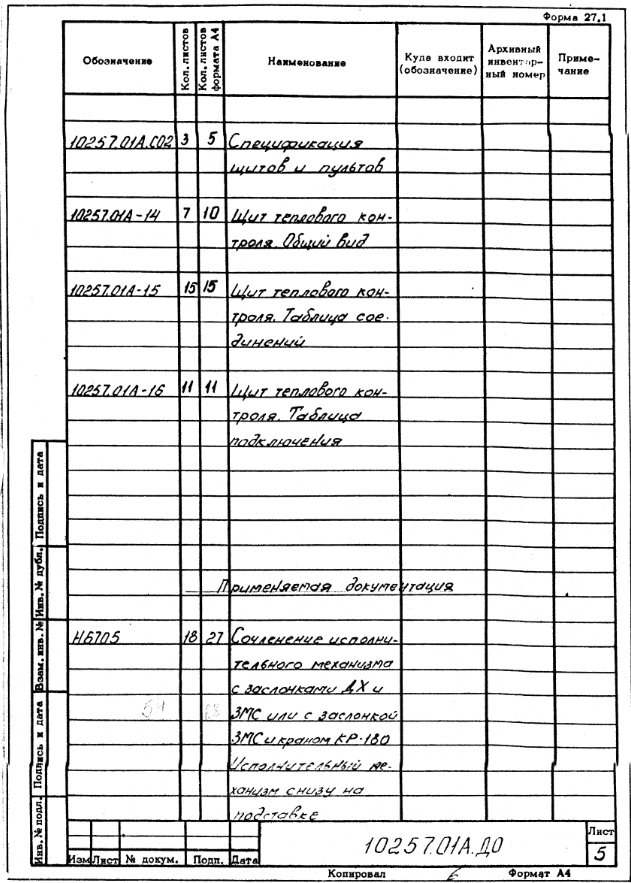 Форма 27.1
Обозначение
Кол. листов
Кол. листов формата А4
Наименование
Куда входит (обозначение)
Архивный инвентарный номер
Примечание
10257.01А.С02 3 5 Спецификация
щитов и пультов
10257.01А-14 7 10 Щит теплового кон-
троля. Общий вид
10257.01А-15 15 15 Щит теплового кон-
троля. Таблица сое-
динений
10257.01А-16 11 11 Щит теплового кон-
троля. Таблица
подключения
Применяемая документация
НБ705 18 27 Сочленение исполни-
тельного механизма
с заслонками ДХ и
ЗМС или с заслонкой
ЗМС и краном КР-180
Исполнительный ме-
ханизм снизу на
подставке
Инв. № подл. Подпись и дата Взам. инв. № Инв. № дубл. Подпись и дата
Изм Лист № докум. Подп. Дата
10257.01А.ДО
Лист
5
Копировал
Формат А4